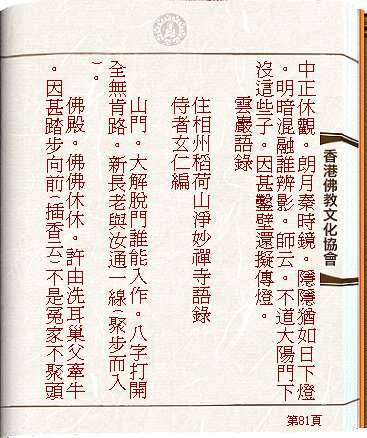 中正休觀。朗月秦時鏡。隱隱猶如日下燈
。明暗混融誰辨影。師云。不道大陽門下
沒這些子。因甚鑿壁還擬傳燈。
雲巖語錄
住相州稻荷山淨妙禪寺語錄
侍者玄仁編
山門。大解脫門誰能入作。八字打開
全無肯路。新長老與汝通一線(聚步而入
)。
佛殿。佛佛休休。許由洗耳巢父牽牛
。因甚踏步向前(插香云)不是冤家不聚頭
香港佛教文化協會
第81頁